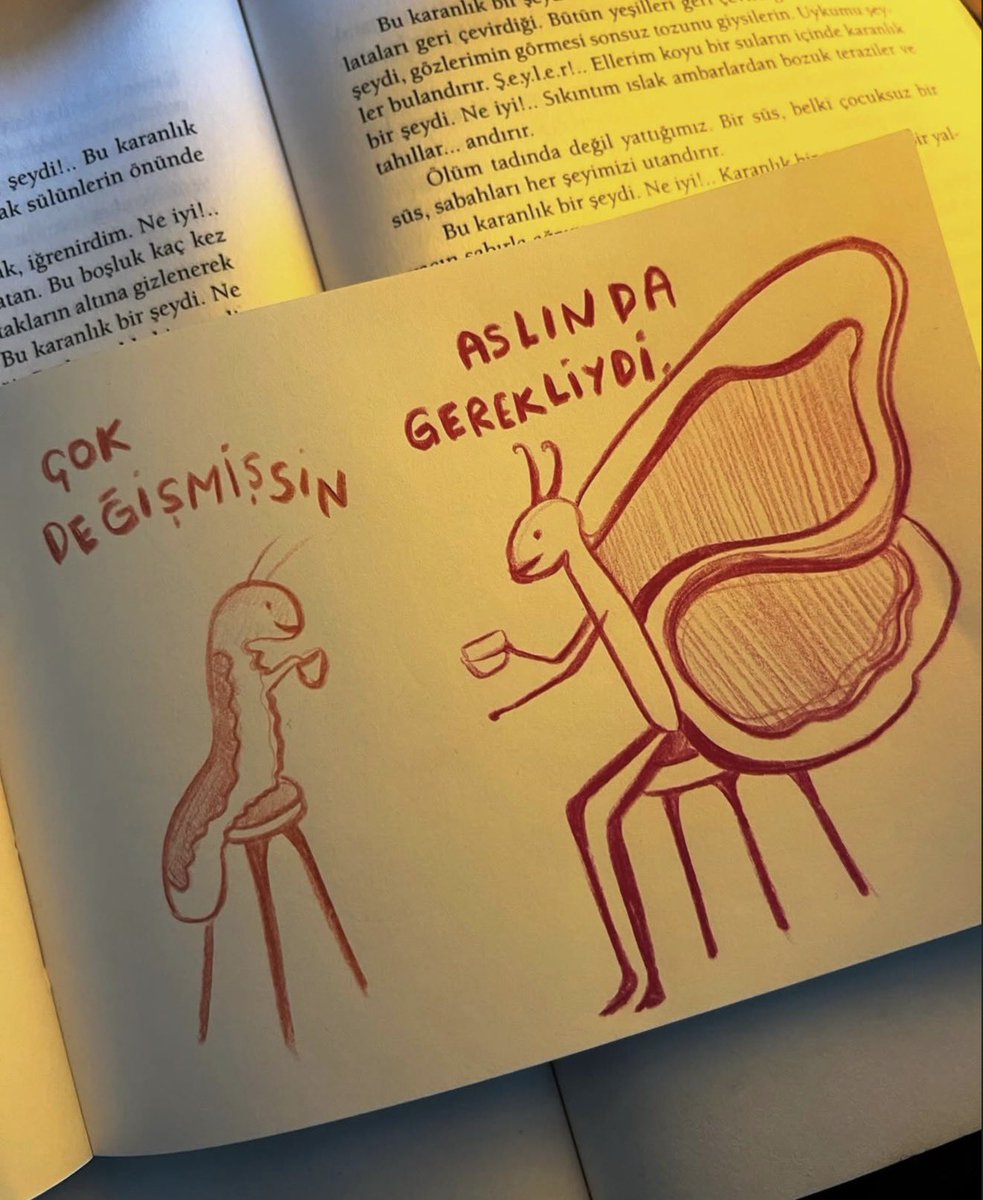 şeydi!.. Bu karanlık
sülünlerin önünde
iğrenirdim. Ne iyi!..
Bu boşluk kaç kez
altına gizlenerek
Bu karanlık bir şeydi. Ne
Bu karanlık bir
lataları geri çevirdiği. Bütün yeşilleri geri
şeydi, gözlerimin görmesi sonsuz tozunu giysilerin. Uykumu şey-
ler bulandırır. Ş.e.y.l.e.r!.. Ellerim koyu bir suların içinde karanlık
bir şeydi. Ne iyi!.. Sıkıntım ıslak ambarlardan bozuk teraziler ve
tahıllar... andırır.
Ölüm tadında değil yattığımız. Bir süs, belki çocuksuz bir
süs, sabahları her şeyimizi utandırır.
Bu karanlık bir şeydi. Ne iyi!.. Karanlık bir yal-
ÇOK
DEĞİŞMİŞSİN
ASLINDA
GEREKLİYDİ.